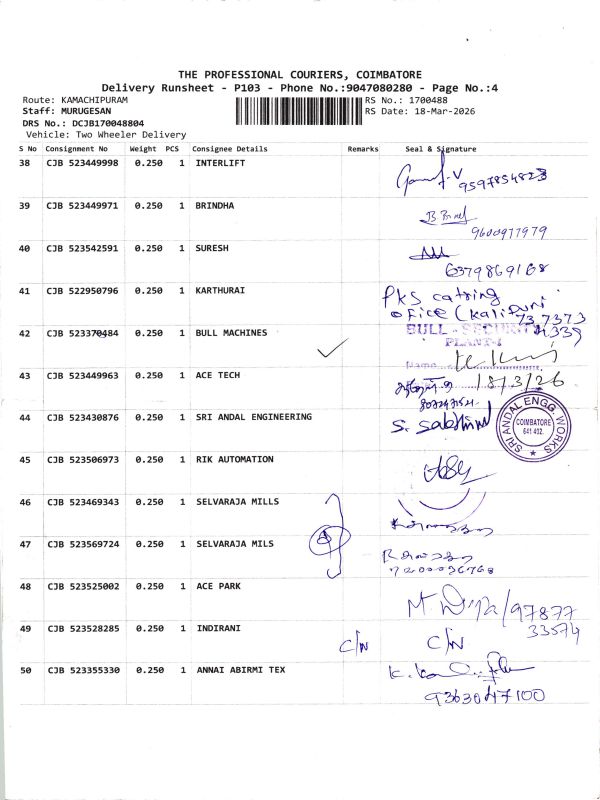 THE PROFESSIONAL COURIERS, COIMBATORE
Delivery Runsheet - P103 - Phone No.:9047080280 - Page No.:4
Route: KAMACHIPURAM RS No.: 1700488
Staff: MURUGESAN RS Date: 18-Mar-2026
DRS No.: DCJB170048804
Vehicle: Two Wheeler Delivery
S No Consignment No Weight PCS Consignee Details Remarks Seal & Signature
38 CJB 523449998 0.250 1 INTERLIFT
9597854823
39 CJB 523449971 0.250 1 BRINDHA
9600977979
40 CJB 523542591 0.250 1 SURESH
6379869168
41 CJB 522950796 0.250 1 KARTHURAI PKS catring
office (Kalipuni
737373
42 CJB 523370484 0.250 1 BULL MACHINES BULL - SECURITY
4339
PLANT-I
Name
43 CJB 523449963 0.250 1 ACE TECH 18/3/26
44 CJB 523430876 0.250 1 SRI ANDAL ENGINEERING S.
SRI ANDAL ENGG. WORKS
COIMBATORE
641 402.
45 CJB 523506973 0.250 1 RIK AUTOMATION
46 CJB 523469343 0.250 1 SELVARAJA MILLS
47 CJB 523569724 0.250 1 SELVARAJA MILS
7200036768
48 CJB 523525002 0.250 1 ACE PARK /97877
33574
49 CJB 523528285 0.250 1 INDIRANI C/N C/N
50 CJB 523355330 0.250 1 ANNAI ABIRMI TEX K.
9363047100